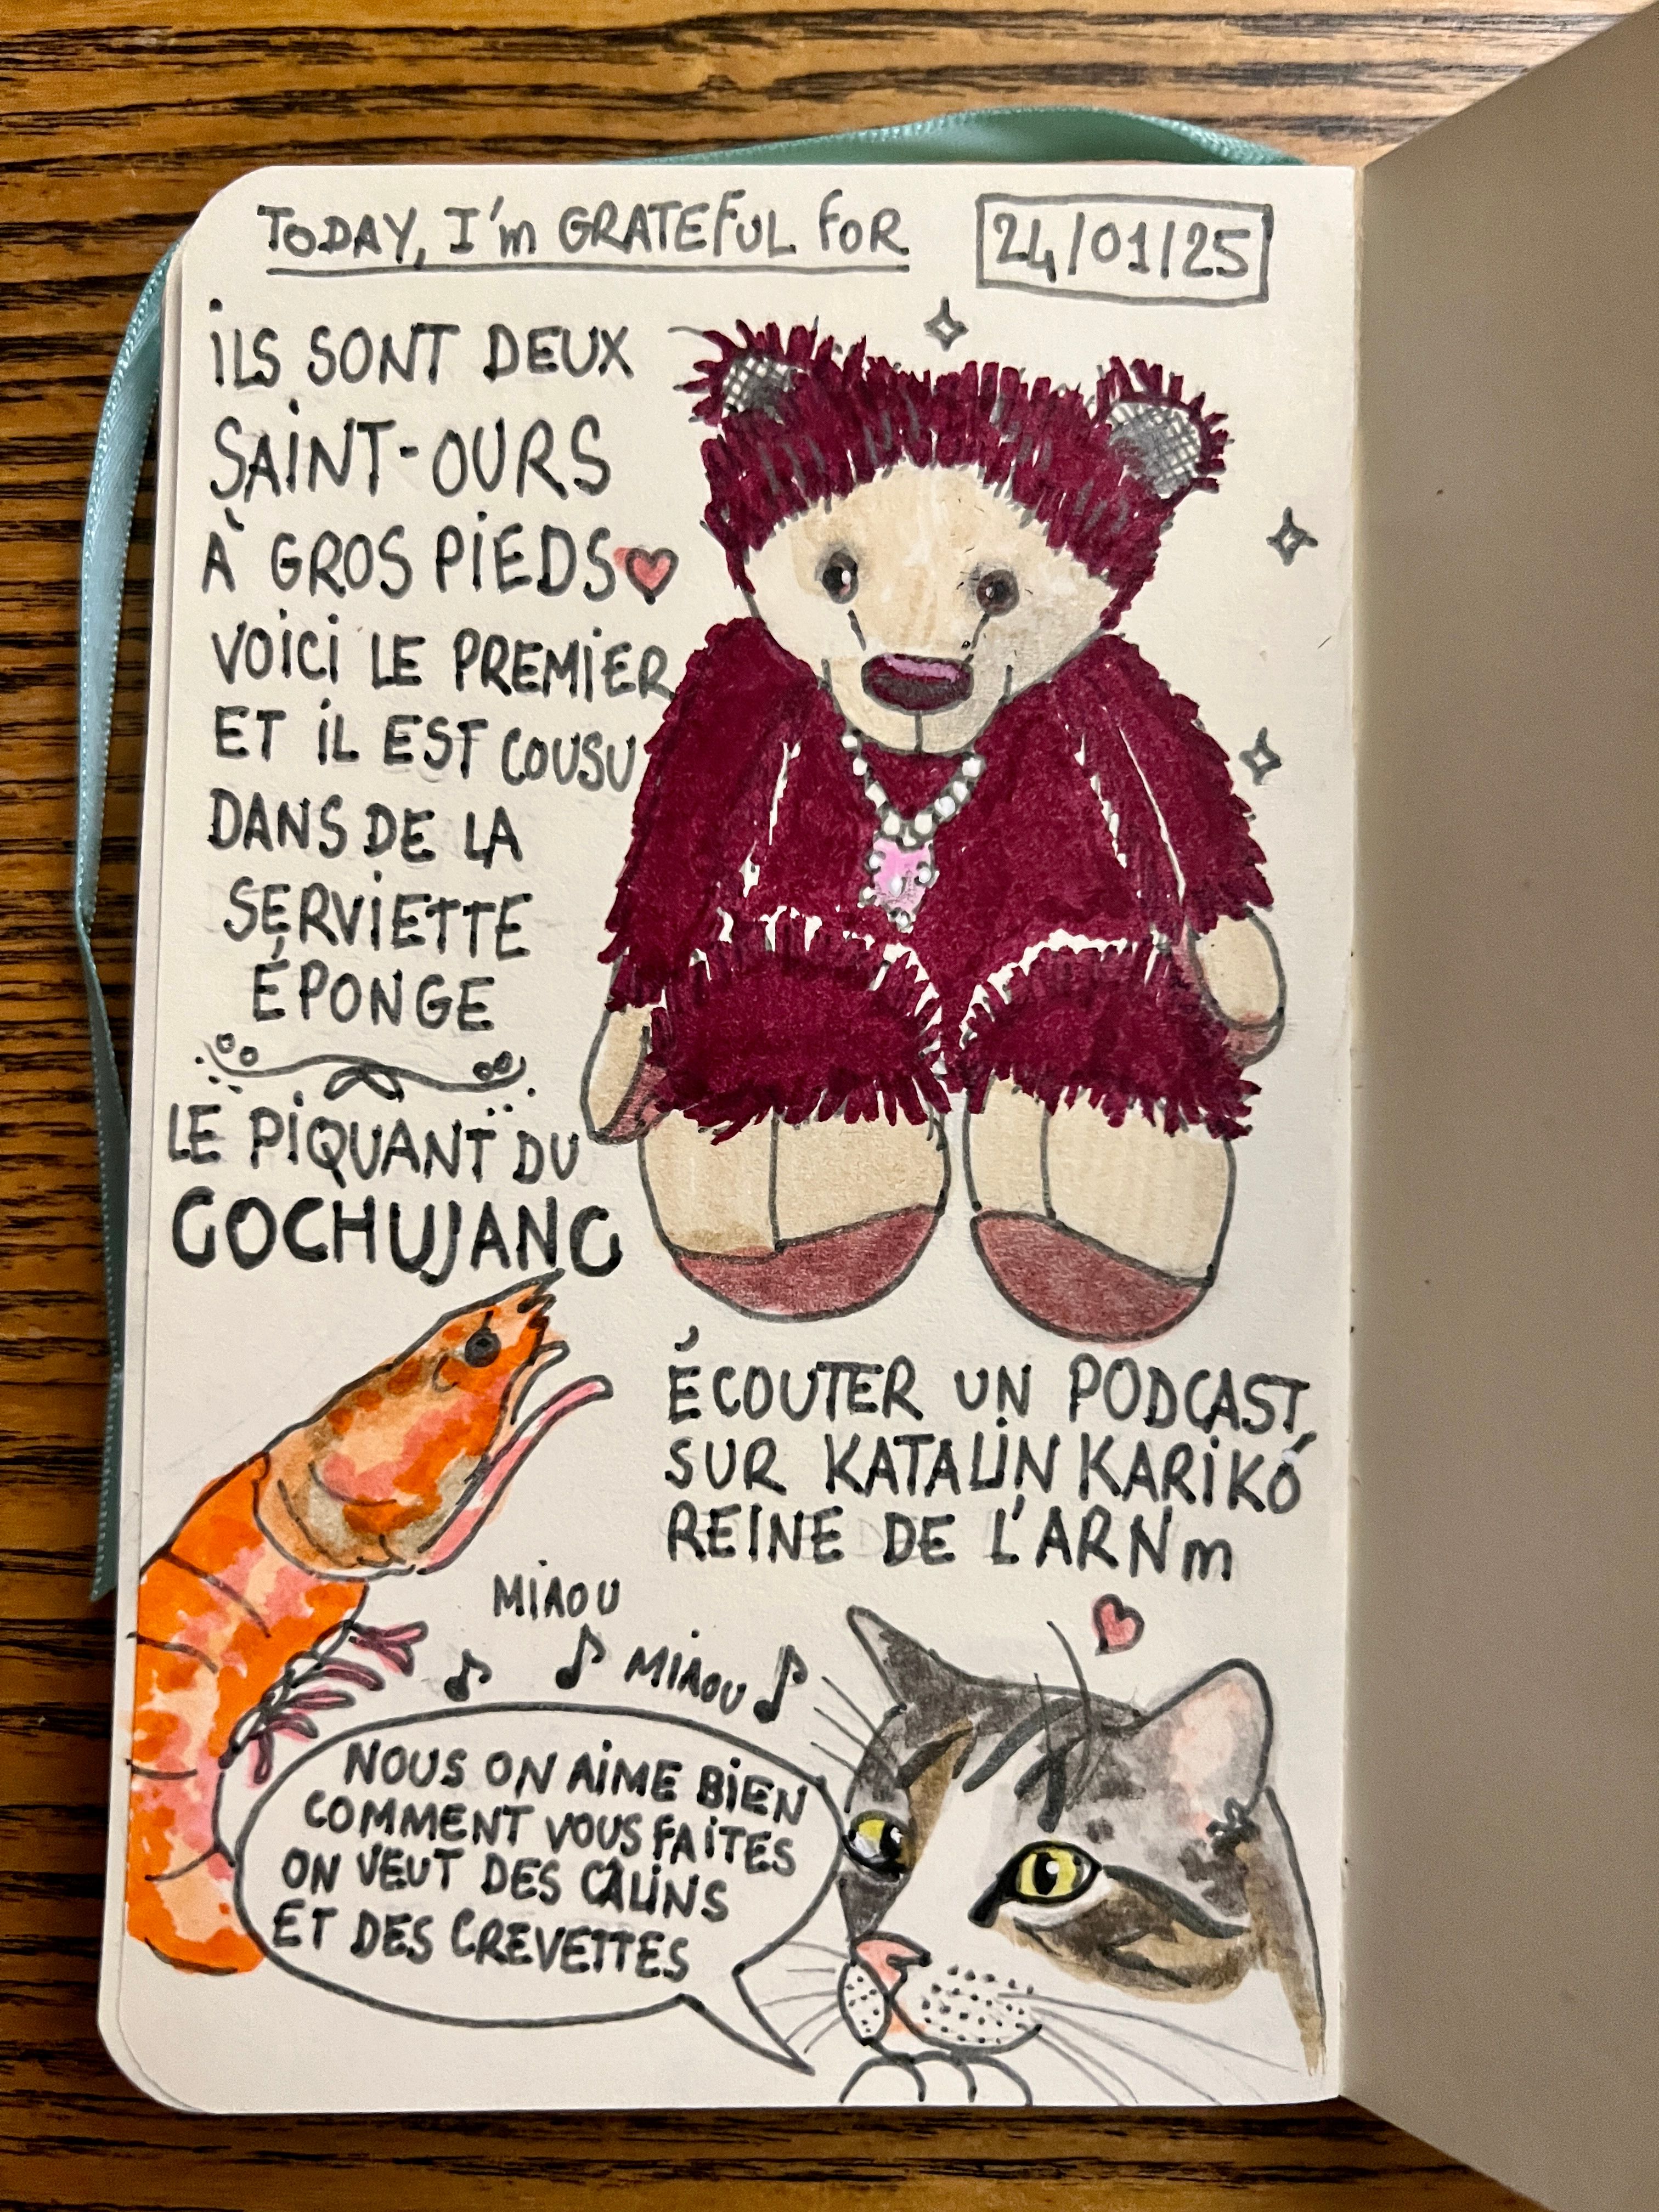 TODAY, I'm GRATEFUL FOR
24/01/25
iLS SONT DEUX
SAiNT-OURS
À GROS PiEDS
VOiCi LE PREMiER
ET iL EST COUSU
DANS DE LA
SERViETTE
ÉPONGE
LE PiQUANT DU
GOCHUJANG
ÉCOUTER UN PODCAST
SUR KATALiN KARiKÓ
REINE DE L'ARNm
MiAOU
MiAOU
NOUS ON AiME BiEN
COMMENT VOUS FAiTES
ON VEUT DES CÂLiNS
ET DES CREVETTES